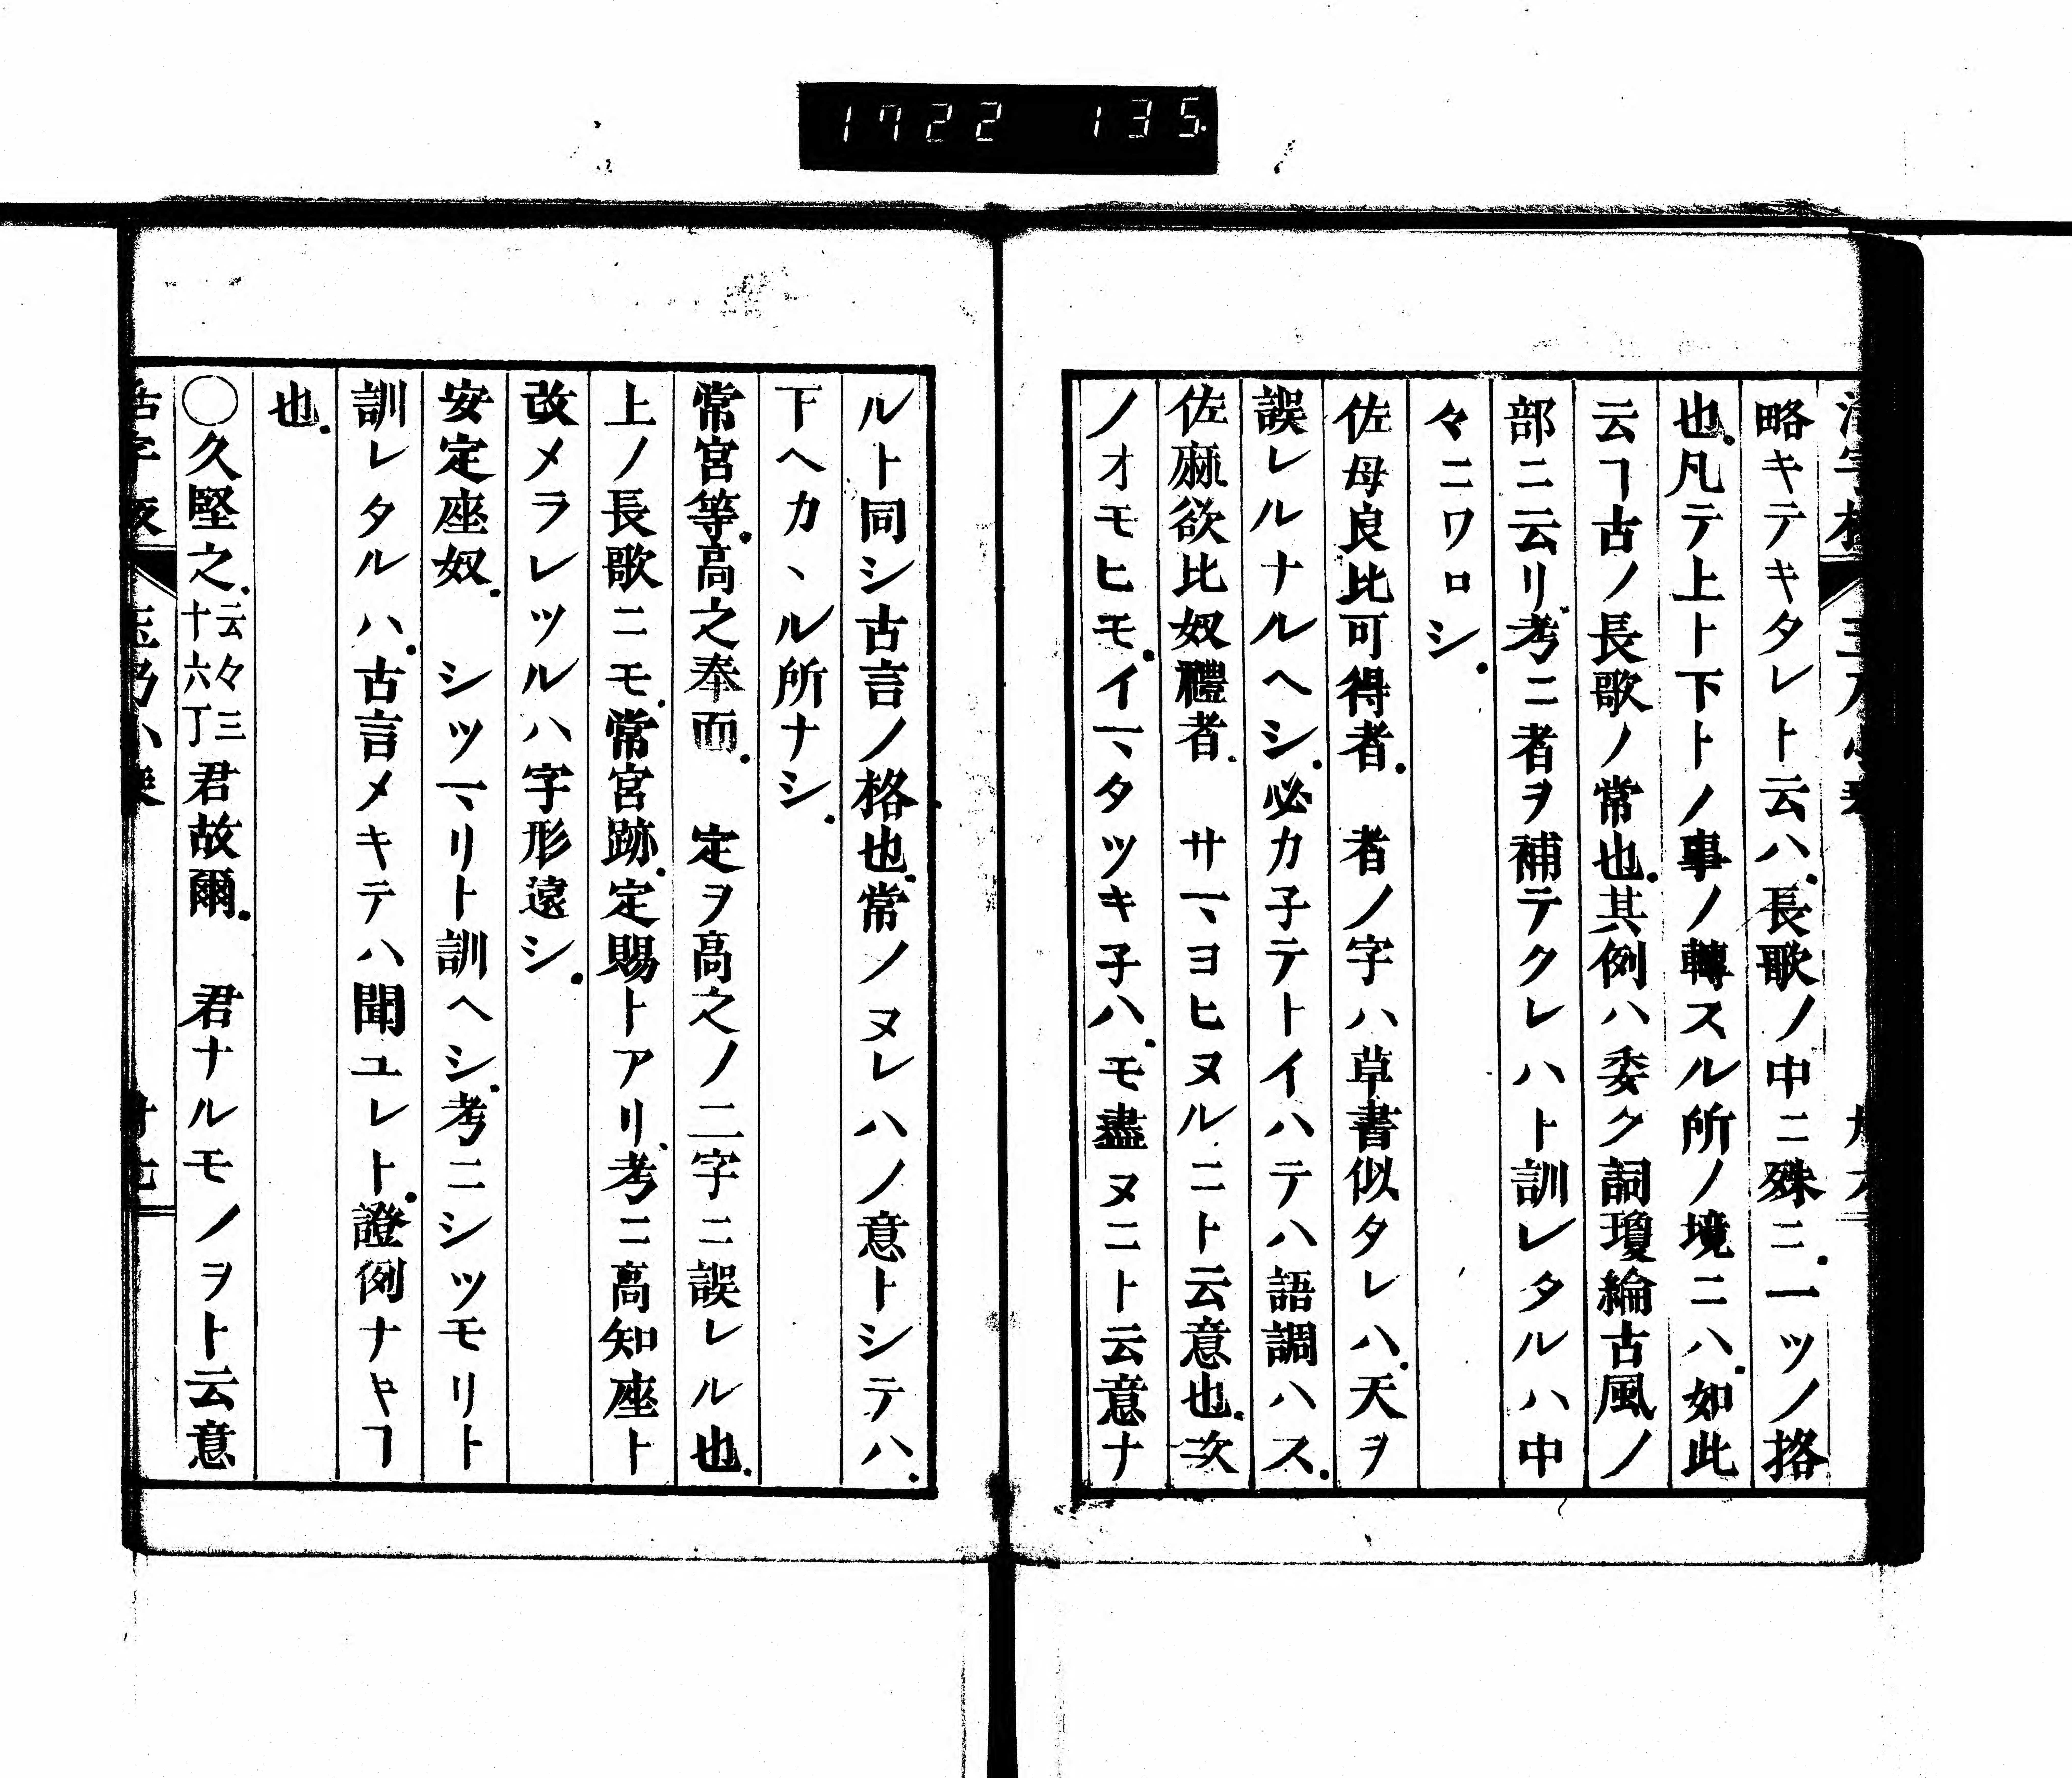 1722 135
略キテキタレト云ハ.長歌ノ中ニ殊ニ.一ツノ挌
也.凡テ上ト下トノ事ノ轉スル所ノ境ニハ.如此
云ヿ古ノ長歌ノ常也.其例ハ委ク詞瓊綸古風ノ
部ニ云リ.考ニ者ヲ補テクレハト訓レタルハ中
々ニワロシ.
佐母良比可得者.　者ノ字ハ草書似タレハ.天ヲ
誤レルナルヘシ.必カ子テトイハテハ語調ハス.
佐麻欲比奴禮者.　サマヨヒヌルニト云意也.次
ノオモヒモ.イマタツキ子ハ.モ盡ヌニト云意ナ
ルト同シ古言ノ格也.常ノヌレハノ意トシテハ.
下ヘカヽル所ナシ.
常宮等.高之奉而.　定ヲ高之ノ二字ニ誤レル也.
上ノ長歌ニモ.常宮跡.定賜トアリ.考ニ高知座ト
改メラレツルハ字形遠シ.
安定座奴.　シツマリト訓ヘシ.考ニシツモリト
訓レタルハ.古言メキテハ聞ユレト.證例ナキヿ
也.
◯久堅之.云々三十六丁君故爾.　君ナルモノヲト云意